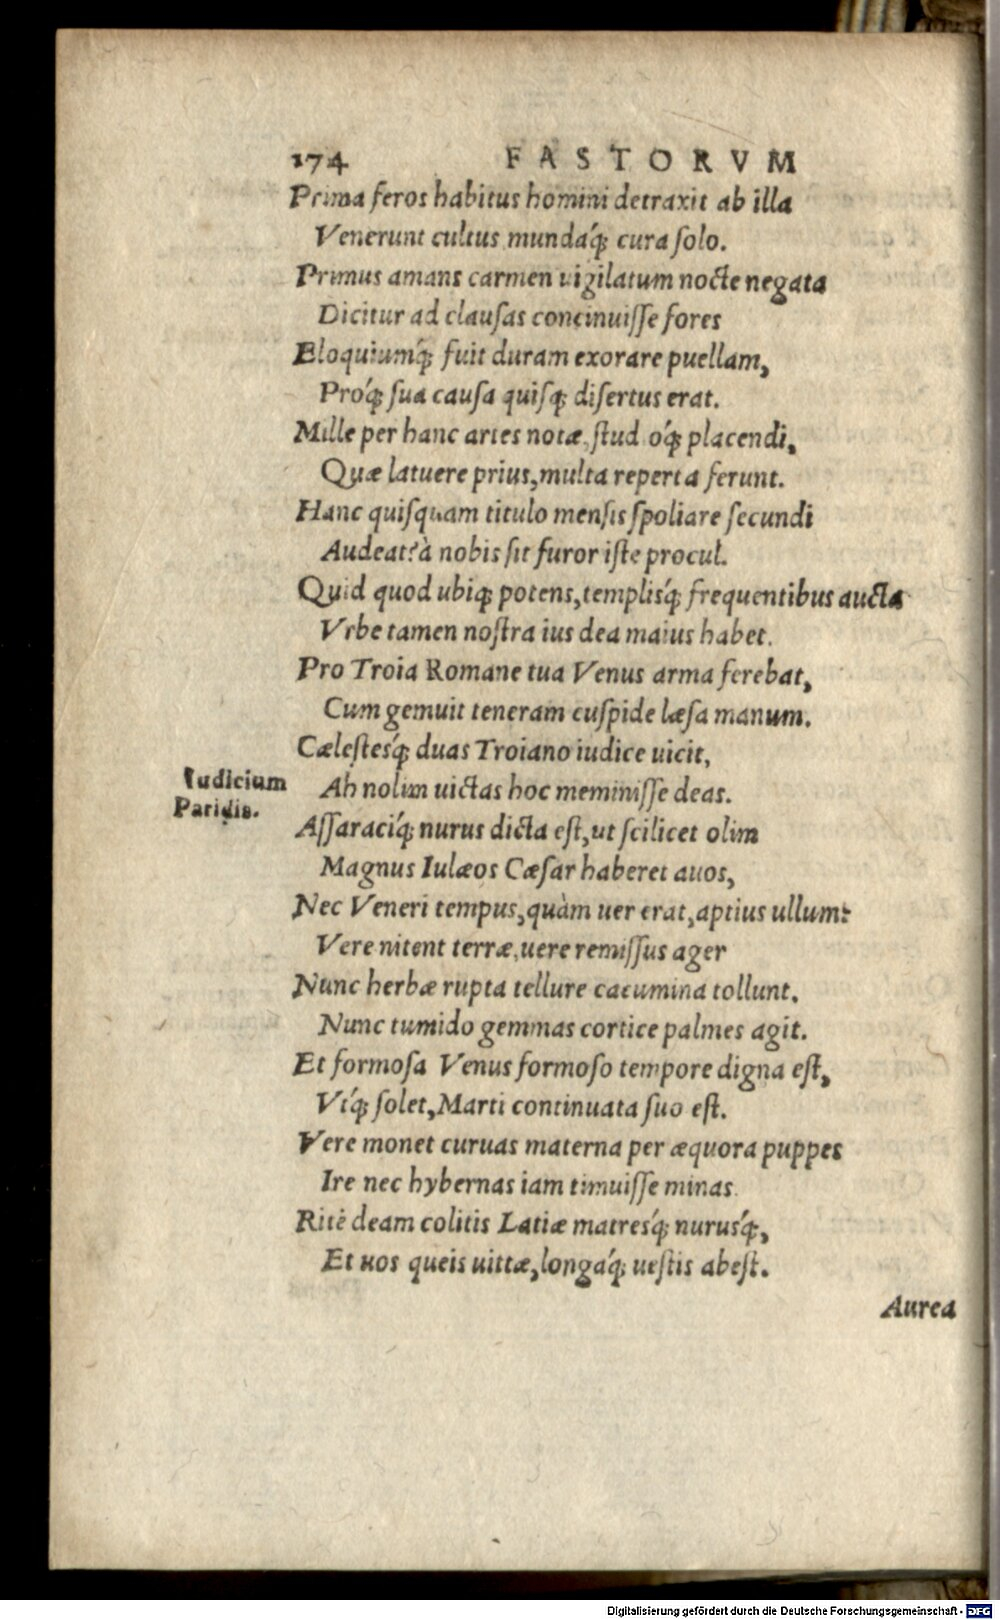 174 FASTORVM
Prima feros habitus homini detraxit ab illa
Venerunt cultus mundaq́; cura ſolo.
Primus amans carmen uigilatum nocte negata
Dicitur ad clauſas concinuiſſe fores
Eloquiumq́; fuit duram exorare puellam,
Proq́; ſua cauſa quiſq; diſertus erat.
Mille per hanc artes notæ, ſtud oq́; placendi,
Quæ latuere prius, multa reperta ferunt.
Hanc quiſquam titulo menſis ſpoliare ſecundi
Audeat? à nobis ſit furor iſte procul.
Quid quod ubiq; potens, templisq́; frequentibus aucta
Vrbe tamen noſtra ius dea maius habet.
Pro Troia Romane tua Venus arma ferebat,
Cum gemuit teneram cuſpide læſa manum.
Cæleſtesq́; duas Troiano iudice uicit,
Iudicium
Paridis.
Ah nolim uictas hoc meminiſſe deas.
Aſſaraciq́; nurus dicta eſt, ut ſcilicet olim
Magnus Iulæos Cæſar haberet auos,
Nec Veneri tempus, quàm uer erat, aptius ullum:
Vere nitent terræ, uere remiſſus ager
Nunc herbæ rupta tellure cacumina tollunt.
Nunc tumido gemmas cortice palmes agit.
Et formoſa Venus formoſo tempore digna eſt,
Vtq́; ſolet, Marti continuata ſuo eſt.
Vere monet curuas materna per æquora puppes
Ire nec hybernas iam timuiſſe minas.
Ritè deam colitis Latiæ matresq́; nurusq́;,
Et uos queis uittæ, longaq́; ueſtis abeſt.
Aurea
Digitalisierung gefördert durch die Deutsche Forschungsgemeinschaft - DFG